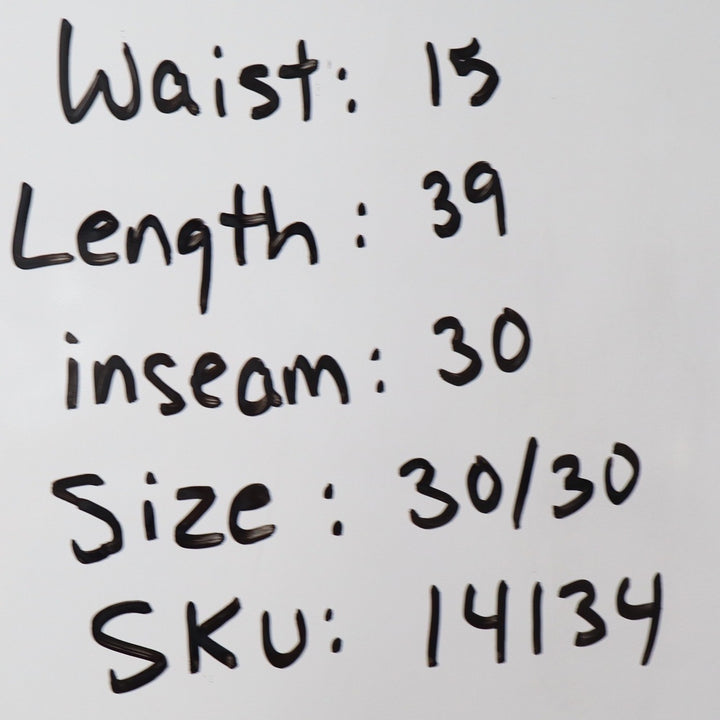 Waist: 15
Length: 39
inseam: 30
Size: 30/30
SKU: 14134